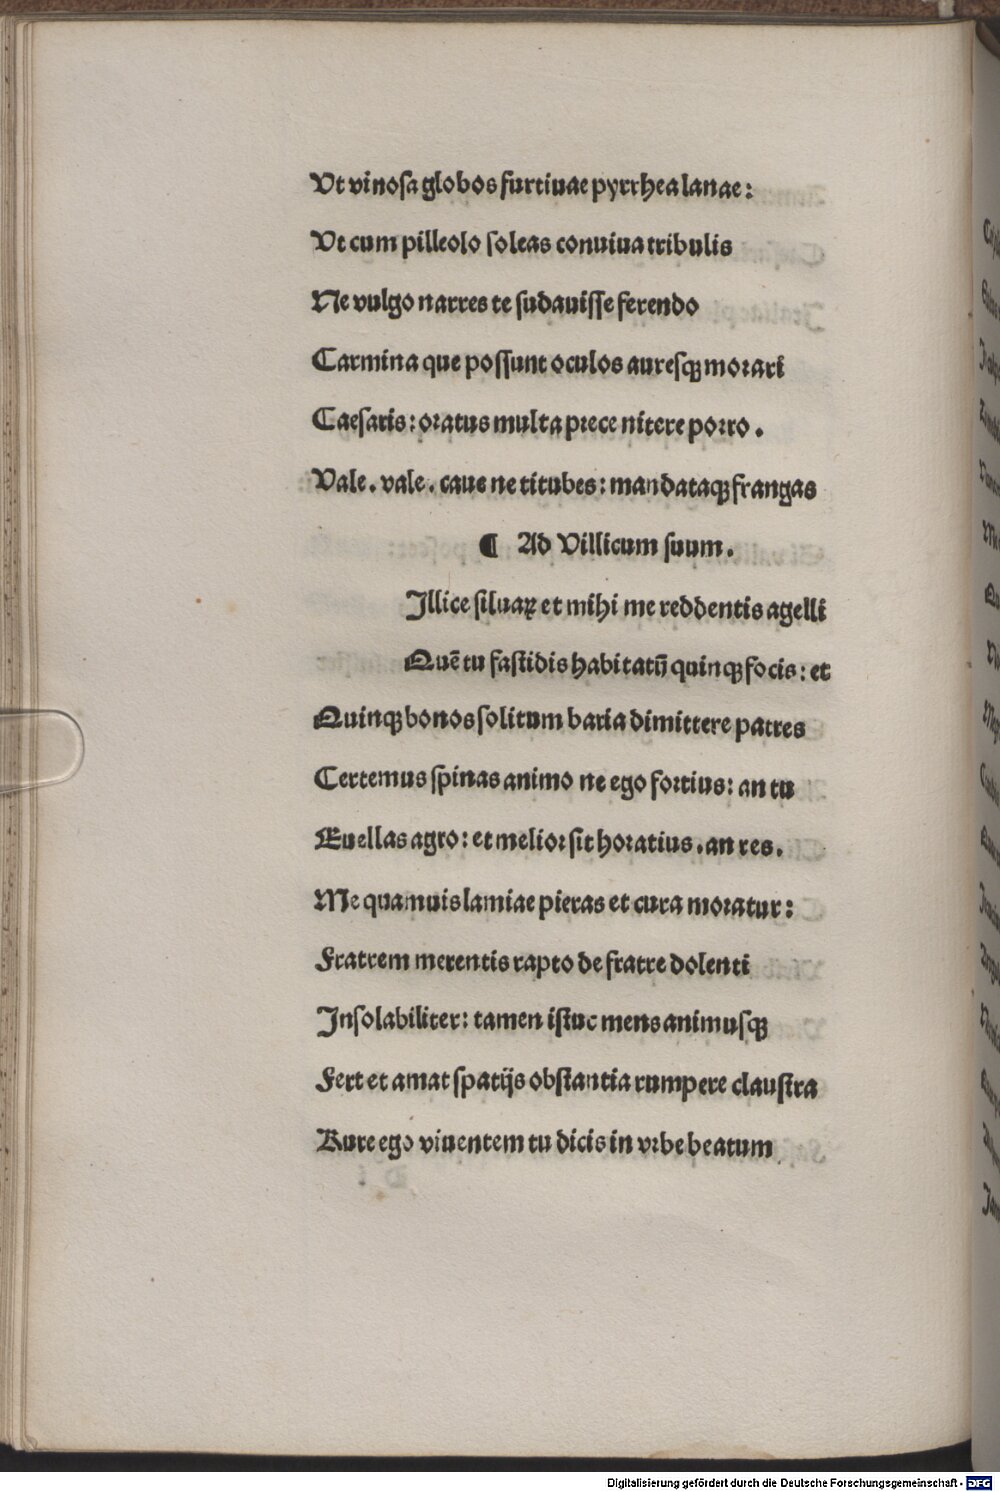 Vt vinoſa globos furtiuae pyrrhea lanae:
Vt cum pilleolo ſoleas conuiua tribulis
Ne vulgo narres te ſudauiſſe ferendo
Carmina que poſſunt oculos aureſqꝫ moꝛari
Caeſaris: oꝛatus multa prece nitere poꝛro.
Vale. vale. caue ne titubes: mandataqꝫ frangas
¶ Ad Villicum ſuum.
Illice ſiluaꝝ et mihi me reddentis agelli
Quē tu faſtidis habitatū quinqꝫ focis: et
Quinqꝫ bonos ſolitum baria dimittere patres
Certemus ſpinas animo ne ego foꝛtius: an tu
Euellas agro: et melioꝛ ſit hoꝛatius. an res.
Me quamuis lamiae pietas et cura moꝛatur:
Fratrem merentis rapto de fratre dolenti
Inſolabiliter: tamen iſtuc mens animuſqꝫ
Fert et amat ſpatijs obſtantia rumpere clauſtra
Rure ego viuentem tu dicis in vꝛbe beatum
Digitalisierung gefördert durch die Deutsche Forschungsgemeinschaft - DFG